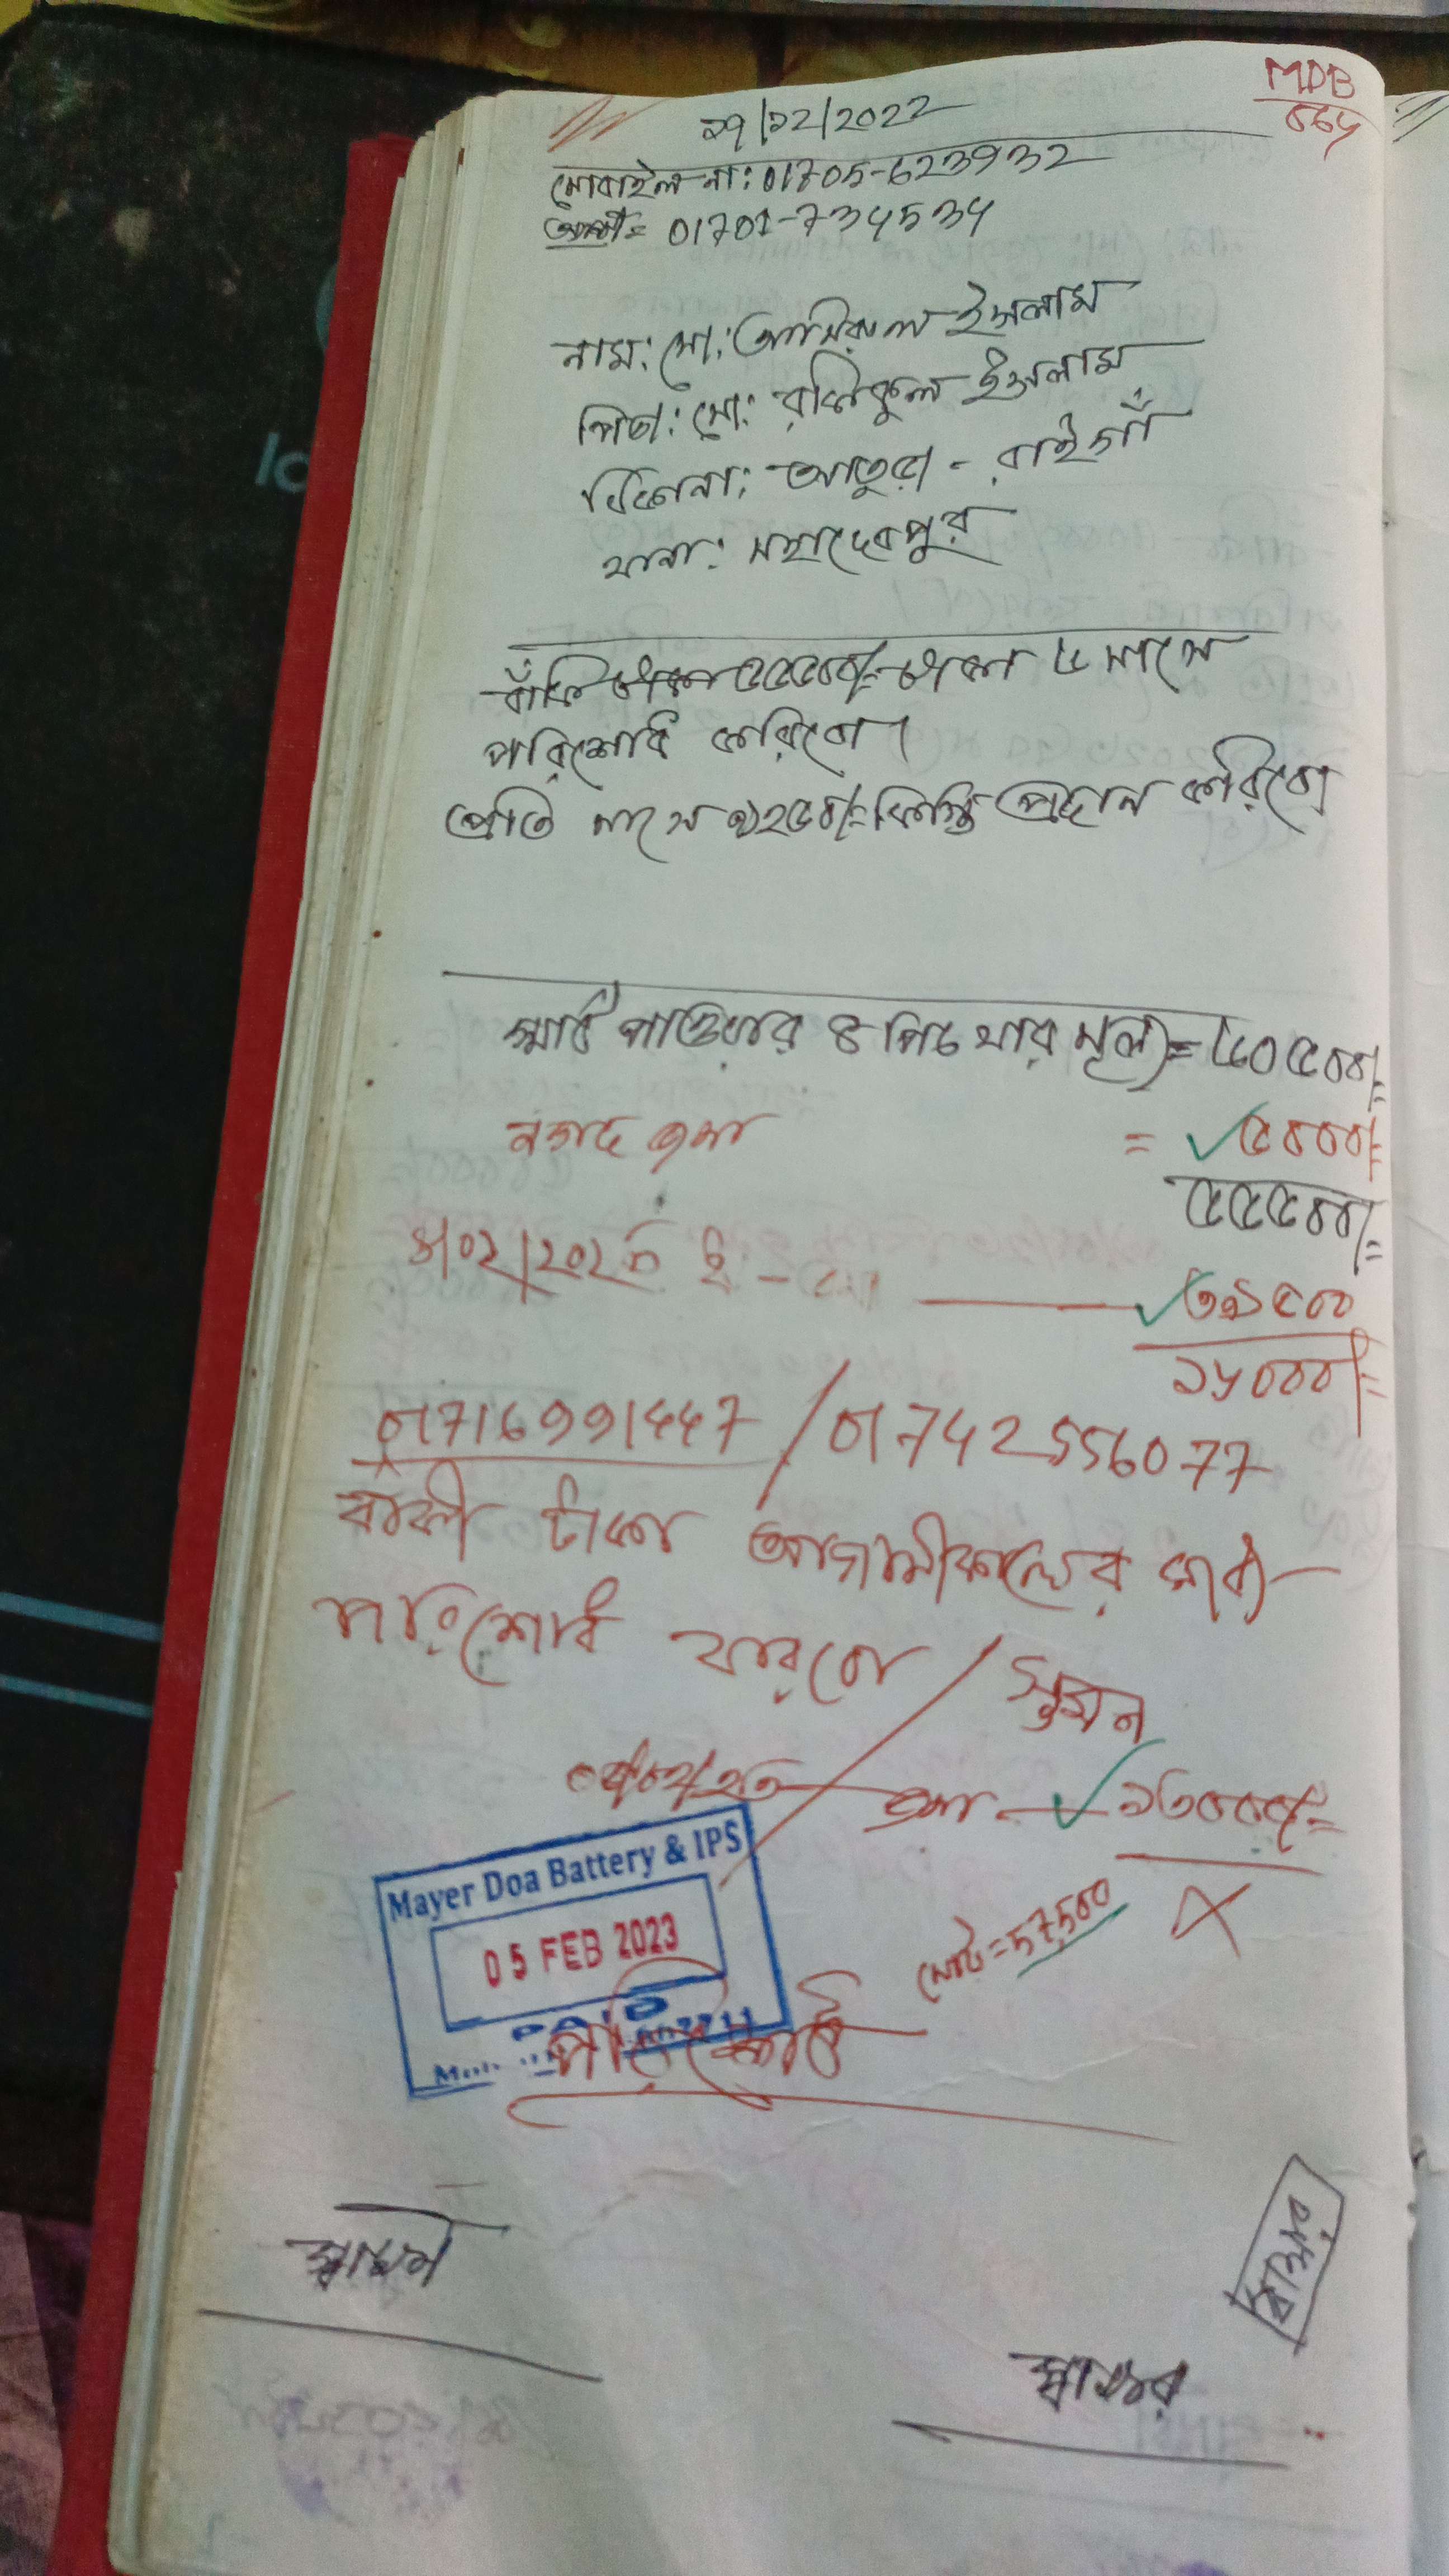 MDB
৮৬৮
২৭/১২/2022
মোবাইল নং: 01705-623932
01701-734534
নাম: মো: আমিরুল ইসলাম
পিতা: মো: রফিকুল ইসলাম
ঠিকানা: আতুড়া - রাইগাঁ
থানা: মহাদেবপুর
বাঁকি টাকা ৫৫৫০০/= টাকা ৬ মাসে
পরিশোধ করিবো।
প্রতি মাসে ৯২৫০/= কিস্তি প্রদান করিবো
স্মার্ট পাওয়ার ৪ পিচ যার মূল্য = ৬০৫০০/=
নগদ জমা = ৫০০০/=
৫৫৫০০/=
৩৯৫০০
১৬০০০/=
01716991447 / 01742556077
বাকী টাকা আগামীকালের মধ্যে
পরিশোধ করবো / সুমন
জমা - ১৩০০০/=
Mayer Doa Battery & IPS
05 FEB 2023
মোট = 57,500
পরিশোধ
স্বাক্ষর
স্বাক্ষর